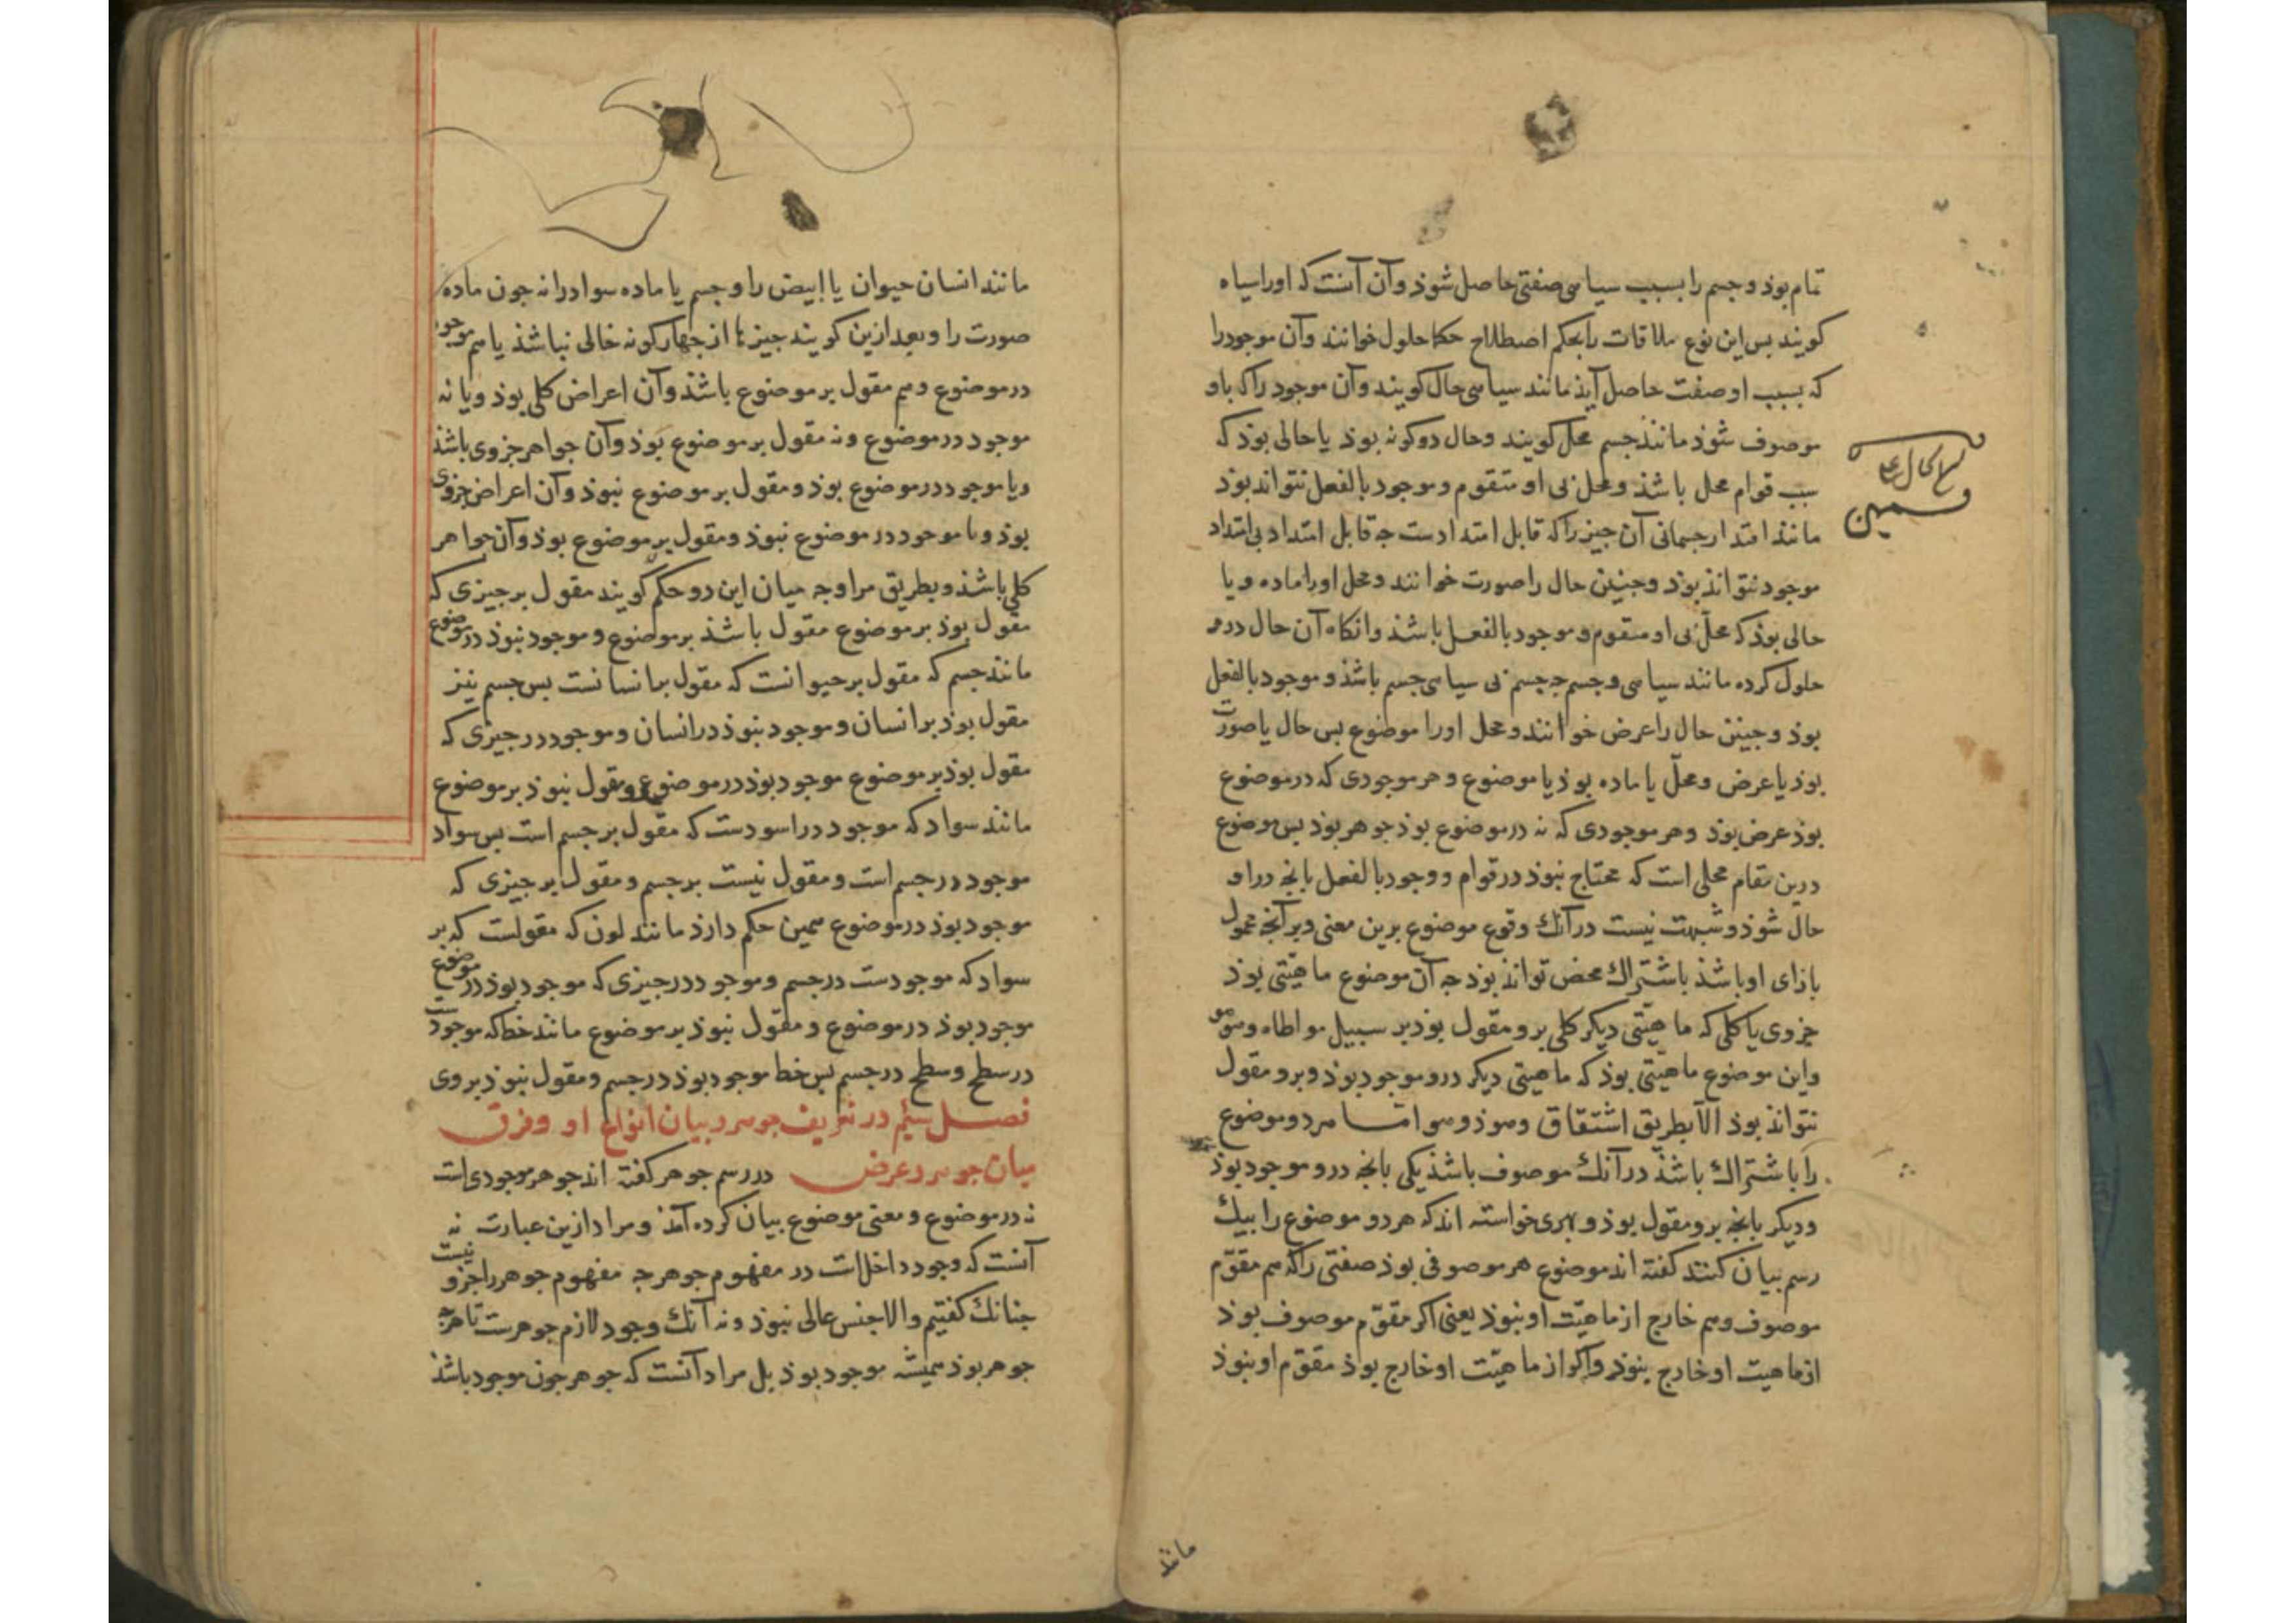 تمام بوذ و جسم را بسبب سیاهی صفتی حاصل شوذ و آن آنست که او را سیاه
کویند بس این نوع ملاقات را بحکم اصطلاح حکما حلول خوانند و آن موجود را
که بسبب او صفت حاصل آیذ مانند سیاهی حال کویند و آن موجود را که باو
موصوف شوذ مانند جسم محل کویند و حال دو کونه بوذ یا حالی بوذ که
سبب قوام محل باشذ و محل بی او متقوم و موجود بالفعل نتواند بوذ
مانند امتداد جسمانی آن جیز را که قابل امتدادست جه قابل امتداد بی امتداد
موجود نتواند بوذ و جنین حال را صورت خوانند و محل او را ماده و یا
حالی بوذ که محل بی او متقوم و موجود بالفعل باشذ و انکاه آن حال درو
حلول کرده مانند سیاهی و جسم جه جسم بی سیاهی جسم باشذ و موجود بالفعل
بوذ و جنین حال را عرض خوانند و محل او را موضوع بس حال یا صورت
بوذ یا عرض و محل یا ماده بوذ یا موضوع و هر موجودی که در موضوع
بوذ عرض بوذ و هر موجودی که نه در موضوع بوذ جوهر بوذ بس موضوع
درین مقام محلی است که محتاج نبوذ در قوام و وجود بالفعل بانجه در او
حال شوذ و شبهت نیست در آنك وقوع موضوع برین معنی و بر آنجه محمول
بازای او باشذ باشتراك محض تواند بوذ جه آن موضوع ماهیتی بوذ
جزوی یا کلی که ماهیتی دیکر کلی برو مقول بوذ بر سبیل مواطاه و هو هو
و این موضوع ماهیتی بوذ که ماهیتی دیکر درو موجود بوذ و برو مقول
نتواند بوذ الا بطریق اشتقاق و هو ذو هو اما هر دو موضوع
را باشتراك باشذ در آنك موصوف باشذ یکی بانجه درو موجود بوذ
و دیکر بانجه برو مقول بوذ و خواسته اند که هر دو موضوع را بیك
رسم بیان کنند کفته اند موضوع هر موصوفی بوذ صفتی را که هم مقوم
موصوف و هم خارج از ماهیت او نبوذ یعنی اکر مقوم موصوف بوذ
از ماهیت او خارج نبوذ و اکر از ماهیت او خارج بوذ مقوم او نبوذ
مانند
مانند انسان حیوان یا ابیض را و جسم یا ماده سواد را نه جون ماده
صورت را و بعد ازین کویند جیزها از جهار کونه خالی نباشذ یا هم موجود
در موضوع و هم مقول بر موضوع باشذ و آن اعراض کلی بوذ و یا نه
موجود در موضوع و نه مقول بر موضوع بوذ و آن جواهر جزوی باشذ
و یا موجود در موضوع بوذ و مقول بر موضوع نبوذ و آن اعراض جزوی
بوذ و یا موجود در موضوع نبوذ و مقول بر موضوع بوذ و آن جواهر
کلی باشذ و بطریق مراوجه میان این دو حکم کویند مقول بر جیزی که
مقول بوذ بر موضوع مقول باشذ بر موضوع و موجود نبوذ در موضوع
مانند جسم که مقول بر حیوانست که مقول بر انسانست بس جسم نیز
مقول بوذ بر انسان و موجود نبوذ در انسان و موجود در جیزی که
مقول بوذ بر موضوع موجود بوذ در موضوع و مقول نبوذ بر موضوع
مانند سواد که موجود در اسودست که مقول بر جسم است بس سواد
موجود در جسم است و مقول نیست بر جسم و مقول بر جیزی که
موجود بوذ در موضوع همین حکم دارذ مانند لون که مقولست که بر
سواد که موجودست در جسم و موجود در جیزی که موجود بوذ در موضوع
موجود بوذ در موضوع و مقول نبوذ بر موضوع مانند خط که موجودست
در سطح و سطح در جسم بس خط موجود بوذ در جسم و مقول نبوذ بر وی
فصل سیم در تعریف جوهر و بیان انواع او و فرق
میان جوهر و عرض در رسم جوهر کفته اند جوهر موجودی است
نه در موضوع و معنی موضوع بیان کرده آمذ و مراد ازین عبارت نه
آنست که وجود داخلست در مفهوم جوهر جه مفهوم جوهر را جزو نیست
جنانك کفتیم و الا جنس عالی نبوذ و نه آنك وجود لازم جوهرست تا هرجه
جوهر بوذ همیشه موجود بوذ بل مراد آنست که جوهر جون موجود باشذ